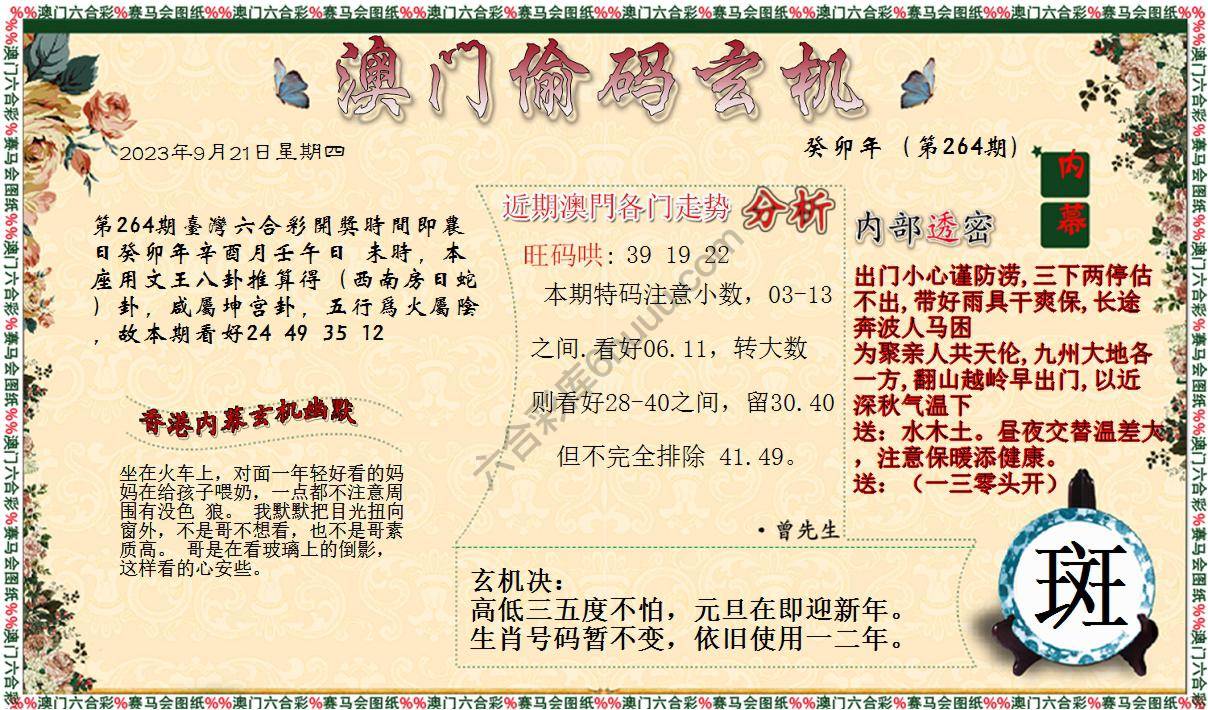 %%澳门六合彩%赛马会图纸%%澳门六合彩%赛马会图纸%%澳门六合彩%赛马会图纸%%澳门六合彩%赛马会图纸%%澳门六合彩%赛马会图纸%%澳门六合彩%赛马会图纸
澳门偷码玄机
2023年9月21日星期四
癸卯年（第264期）
内幕
第264期臺灣六合彩開獎時間即農
日癸卯年辛酉月壬午日 未時，本
座用文王八卦推算得（西南房日蛇
）卦，咸屬坤宫卦，五行爲火屬陰
，故本期看好24 49 35 12
香港内幕玄机幽默
坐在火车上，对面一年轻好看的妈
妈在给孩子喂奶，一点都不注意周
围有没色 狼。 我默默把目光扭向
窗外，不是哥不想看，也不是哥素
质高。 哥是在看玻璃上的倒影，
这样看的心安些。
近期澳門各门走势 分析
旺码哄: 39 19 22
本期特码注意小数，03-13
之间.看好06.11，转大数
则看好28-40之间，留30.40
但不完全排除 41.49。
·曾先生
内部透密
出门小心谨防涝,三下两停估
不出,带好雨具干爽保,长途
奔波人马困
为聚亲人共天伦,九州大地各
一方,翻山越岭早出门,以近
深秋气温下
送：水木土。昼夜交替温差大
，注意保暖添健康。
送：（一三零头开）
玄机决：
高低三五度不怕，元旦在即迎新年。
生肖号码暂不变，依旧使用一二年。
斑